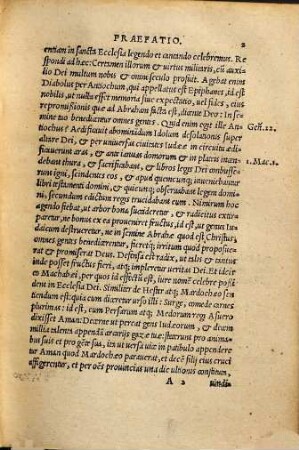 PRAEFATIO.
2
entiam in sancta Ecclesia legendo et cantando celebremus. Re
spondi ad hæc: Certamen illorum & virtus militaris, cū auxi
dio Dei multum nobis & omni seculo profuit. Agebat enim
Diabolus per Antiochum, qui appellatus est Epiphanes, id est
nobilis, ut nulla esset memoria siue expectatio, uel fides, eius
repromissionis quæ ad Abraham facta est, dicente Deo: In se-
mine tuo benedicentur omnes gentes: Quid enim egit ille An
tiochus? Aedificauit abominandum Idolum desolationis super
altare Dei, & per uniuersas ciuitates Iudæ in circuitu æ
dificauerunt aras, & ante ianuas domorum & in plateis incen
debant thura, & sacrificabant, & libros legis Dei combusse-
runt igni, scindentes eos, & apud quemcunq; inueniebantur
libri testamenti domini, & quicunq; obseruabant legem domi
ni, secundum edictum regis trucidabant eum. Nimirum hoc
agendo flebat, ut arbor bona succideretur, & radicitus extir
paretur, ne bonus ex ea proueniret fructus, id est, ut genus Iu
dæum destrueretur, ne in semine Abrahæ quod est Christus,
omnes gentes benedicerentur, fieretq; irritum quod proposue
rat & promiserat Deus. Defensa est radix, ut illis & ut cunctis
inde posset fructus fieri, atq; impleretur ueritas Dei. Et ideo
hi Machabæi, per quos id effectū est, iure uidentur celebre
dem in Ecclesia Dei. Similiter de Hester atq; Mardochæo
tiendum est: quia cum diceretur urso illi: Surge, comede carnes
plurimas: id est, cum Persarum atq; Medorum regi Asuero
dixisset Aman: Decerne ut pereat gens Iudæorum, & decem
millia talentorum appendā arcarijs gazæ tuæ: steterunt pro animi-
bus suis et pro gēte sua, ita ut uersa uice in patibulo appendere
tur Aman quod Mardochæo parauerat, et decē filij eius cruci
affigerentur, et per oēs prouincias una die ultionis constituta,
Gen. 22.
1. Mac. 1.
A 2